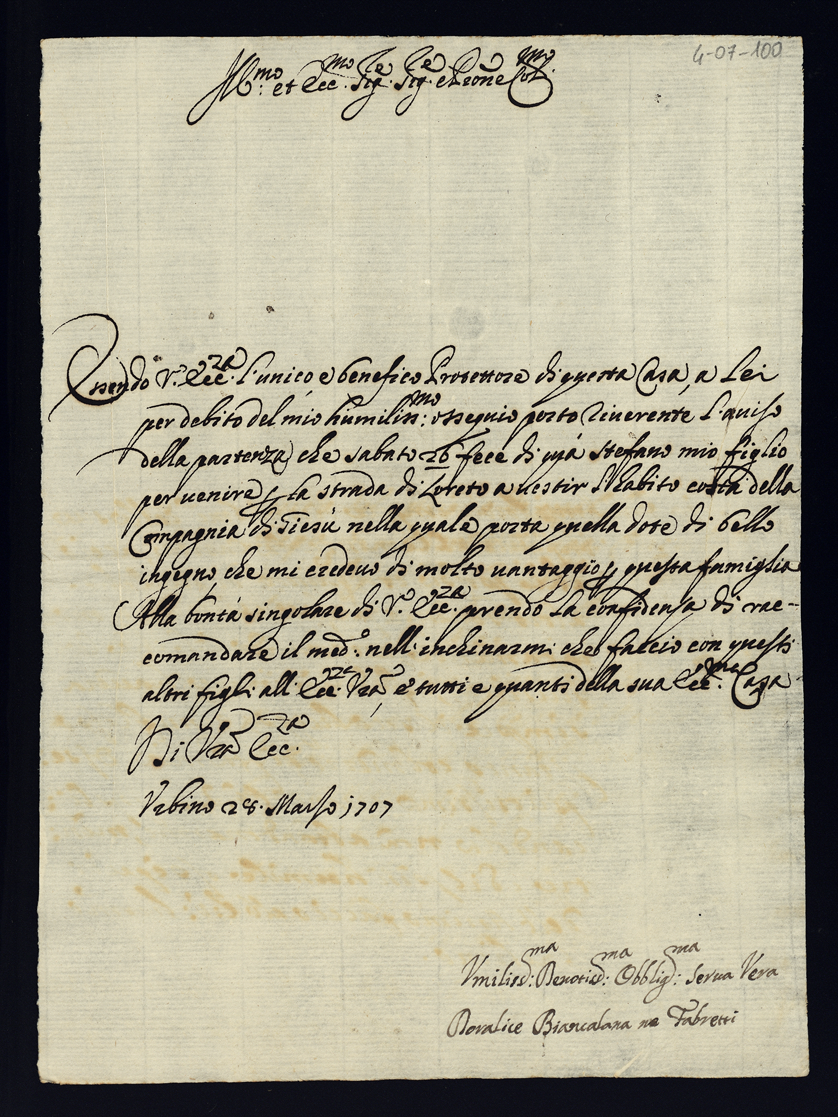 4-07-100
Ill.mo et Ecc.mo Sig.re Sig.re e Prone Col.mo
Essendo V.a Ecc.za l'unico e benefico Protettore di questa Casa, a Lei
per debito del mio humiliss.mo ossequio porto riverente l'auiso
della partenza, che sabato 26 fece di quà stefano mio figlio
per venire p la strada di Loreto a uestir l'habito costà della
Compagnia di Giesù nella quale porta quella dote di bello
ingegno che mi credeuo di molto uantaggio p questa famiglia
Alla bontà singolare di V.a Ecc.za prendo la confidensa di rac-
comandare il med.o nell'inchinarmi che faccio con questi
altri figli all'Ecc.za Vra, e tutti e quanti della sua Ecc.ma Casa
Di Vra Ecc.za
Vrbino 28. Marso 1707
Vmiliss.ma Deuotiss.ma Obblig.ma serua Vera
Doralice Biancalana ne Fabretti